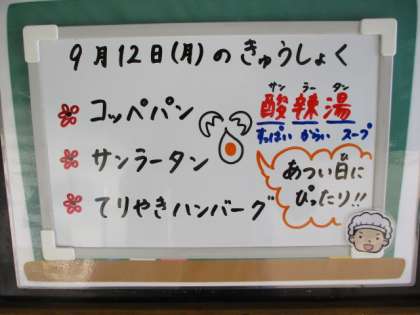 9月12日(月)のきゅうしょく
コッペパン
サンラータン
てりやきハンバーグ
サン ラー タン
酸辣湯
すっぱい からい スープ
あつい日に
ひ
ぴったり!!